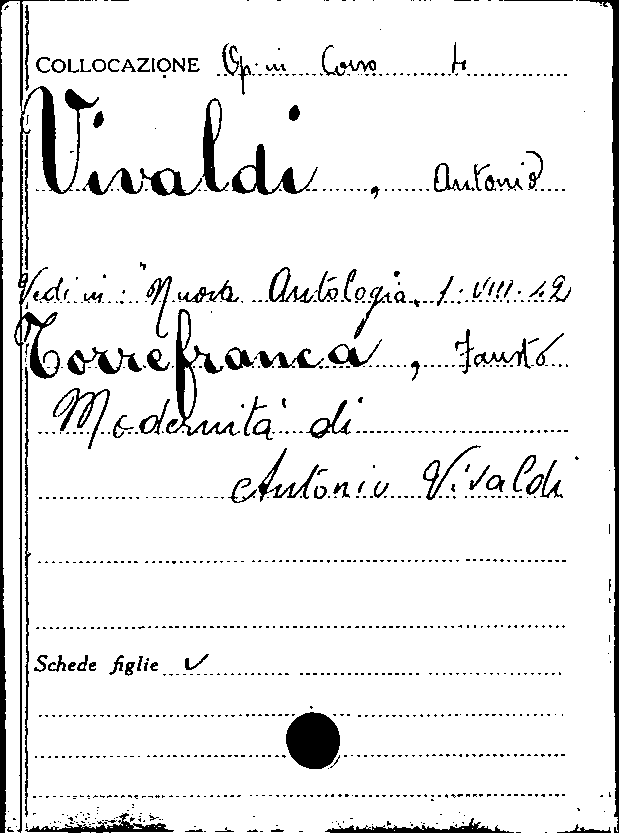 COLLOCAZIONE Op. in Corso
Vivaldi, Antonio
Vedi in: "Nuova Antologia, 1-VIII-42
Torrefranca, Fausto
Modernità di
Antonio Vivaldi
Schede figlie ✓